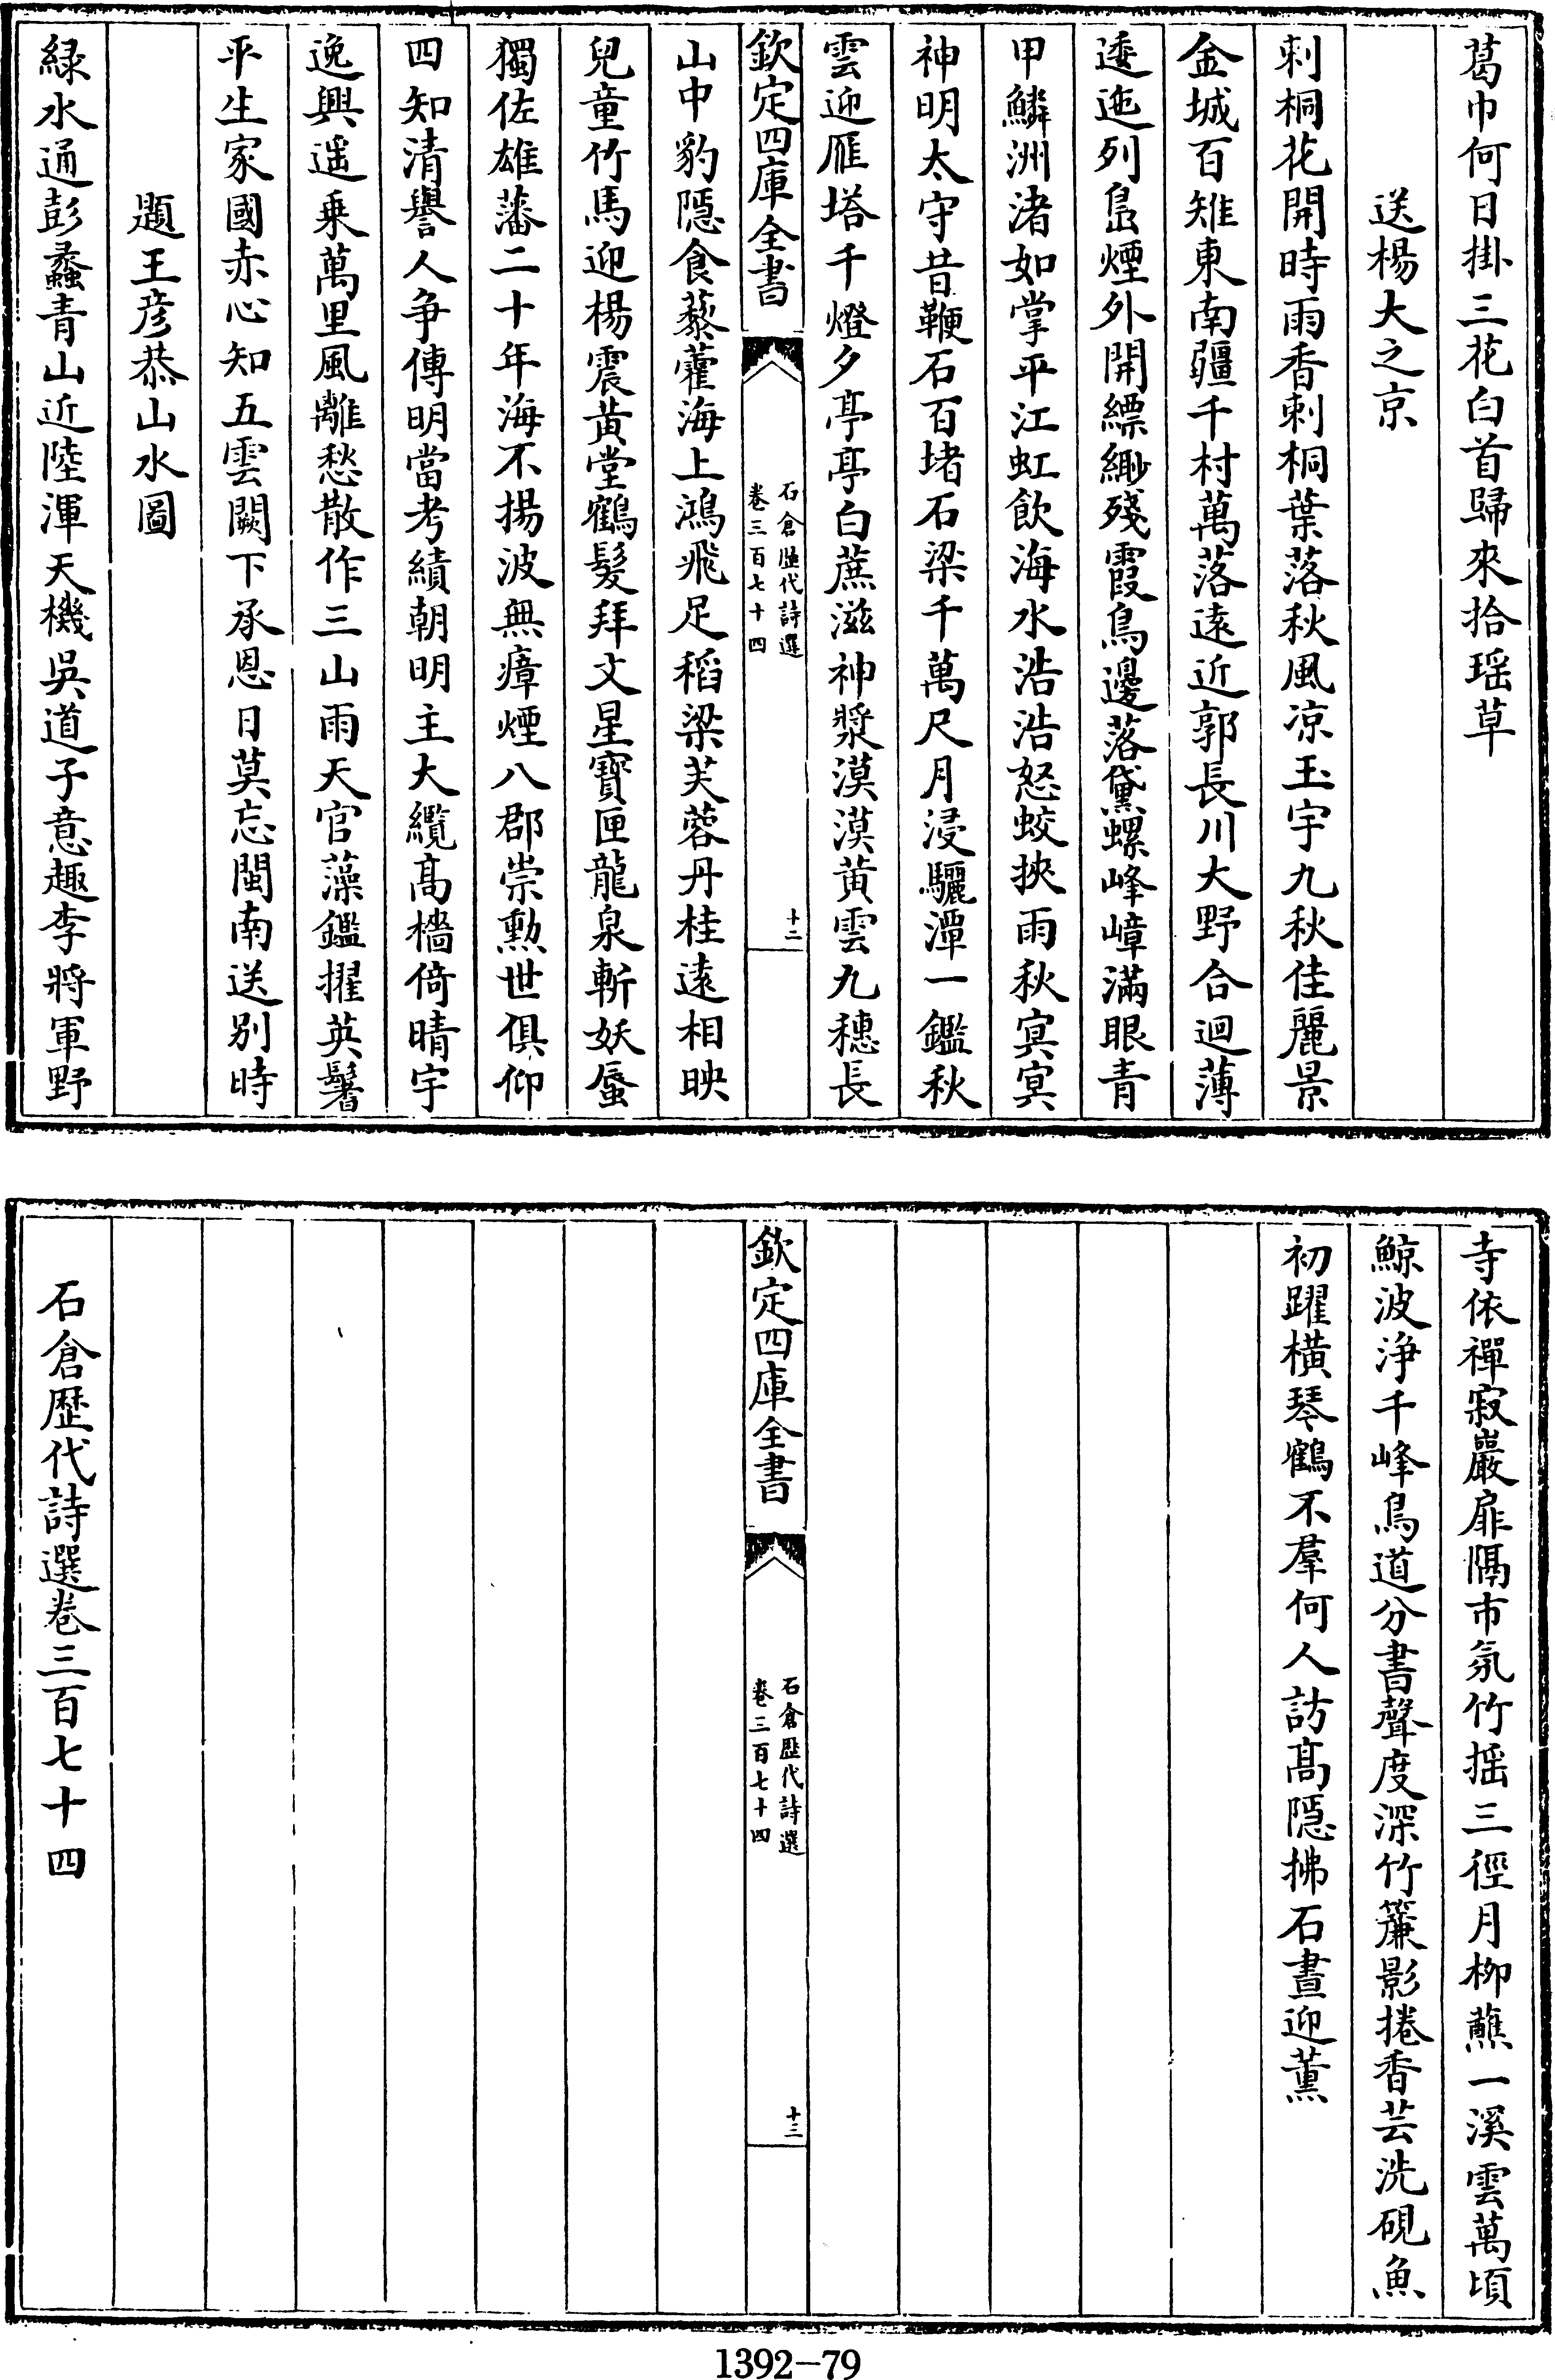 葛巾何日掛三花白首歸來拾瑶草
送楊大之京
刺桐花開時雨香刺桐葉落秋風凉玉宇九秋佳麗景
金城百雉東南疆千村萬落遠近郭長川大野合迴薄
逶迤列島煙外開縹緲殘霞鳥邊落黛螺峰嶂滿眼青
甲鱗洲渚如掌平江虹飲海水浩浩怒蛟挾雨秋冥冥
神明太守昔鞭石百堵石梁千萬尺月浸驪潭一鑑秋
雲迎雁塔千燈夕亭亭白蔗滋神漿漠漠黄雲九穗長
欽定四庫全書
石倉歷代詩選
卷三百七十四
十二
山中豹隱食藜藿海上鴻飛足稻粱芙蓉丹桂遠相映
兒童竹馬迎楊震黄堂鶴髮拜文星寶匣龍泉斬妖蜃
獨佐雄藩二十年海不揚波無瘴煙八郡崇勲世俱仰
四知清譽人争傳明當考績朝明主大纜髙檣倚晴宇
逸興遥乘萬里風離愁散作三山雨天官藻鑑擢英髦
平生家國赤心知五雲闕下承恩日莫忘閩南送别時
題王彦恭山水圖
緑水通彭蠡青山近陸渾天機吳道子意趣李將軍野
寺依禪寂巖扉隔市氛竹揺三徑月柳蘸一溪雲萬頃
鯨波浄千峰鳥道分書聲度深竹簾影捲香芸洗硯魚
初躍横琴鶴不羣何人訪髙隠拂石晝迎薰
欽定四庫全書
石倉歷代詩選
卷三百七十四
十三
石倉歷代詩選卷三百七十四
1392-79